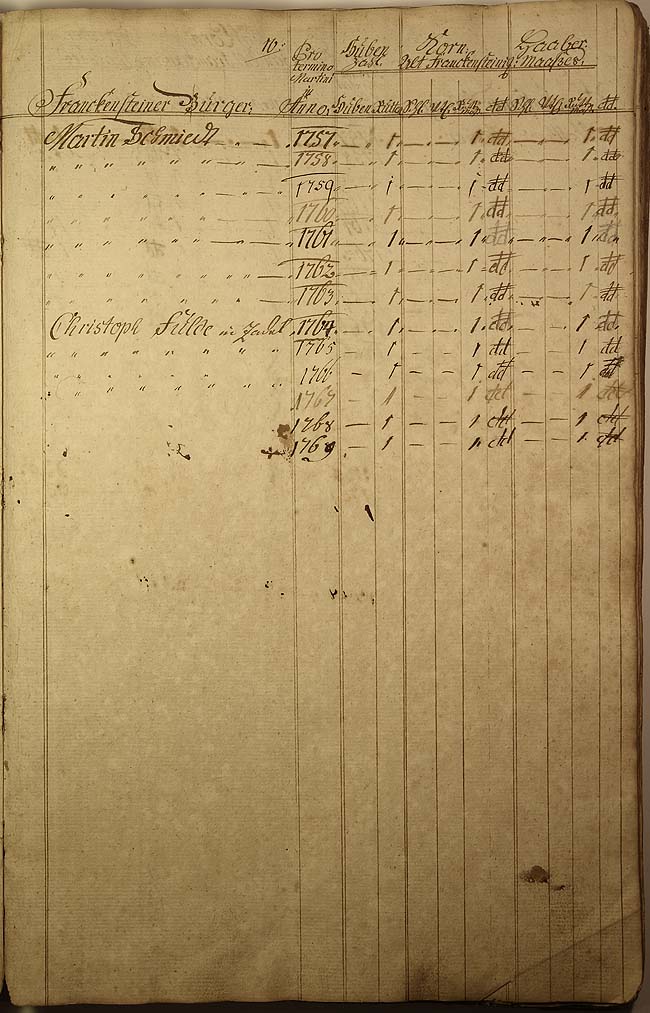 16.
Pro termino Martini
Huben Zahl
Korn. Haaber.
Alt Franckensteinisch Maasses.
Franckensteiner Bürger. Anno. Huben dd dd
Martin Schmiedt 1757. 1 1 dd 1 dd
" " " " " " 1758. 1 1 dd 1 dd
" " " " " " 1759 1 1 dd 1 dd
" " " " " " 1760 1 1 dd 1 dd
" " " " " " 1761 1 1 dd 1 dd
" " " " " " 1762 1 1 dd 1 dd
" " " " " " 1763 1 1 dd 1 dd
Christoph in Zadel 1764. 1 1 dd 1 dd
" " " " " " 1765 — 1 — — 1 dd — — 1 dd
" " " " " " 1766 — 1 — — 1 dd — — 1 dd
" " " " " " 1767 — 1 — — 1 dd — — 1 dd
1768 — 1 — — 1 dd — — 1 dd
1769 — 1 — — 1 dd — — 1 dd